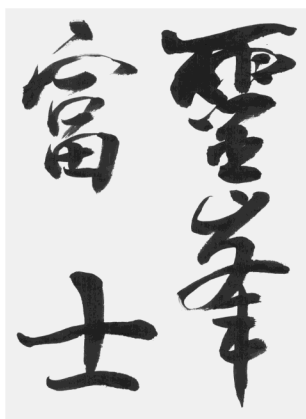 霊峯
富士